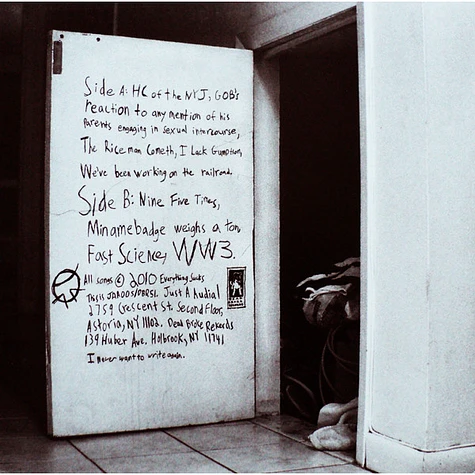 Side A: HC of the NYJ, GOB's
reaction to any mention of his
Parents engaging in sexual intercourse,
The Rice man Cometh, I Lack Gumption,
We've been working on the railroad.
Side B: Nine Five Times,
Minamebadge weighs a ton,
Fast Science, WW3.
All songs © 2010 Everything Sucks
This is Just A Audial
2759 Crescent St. Second Floor,
Astoria, NY 11102. Dead Broke Rekords
139 Huber Ave. Holbrook, NY 11741
I never want to write again.